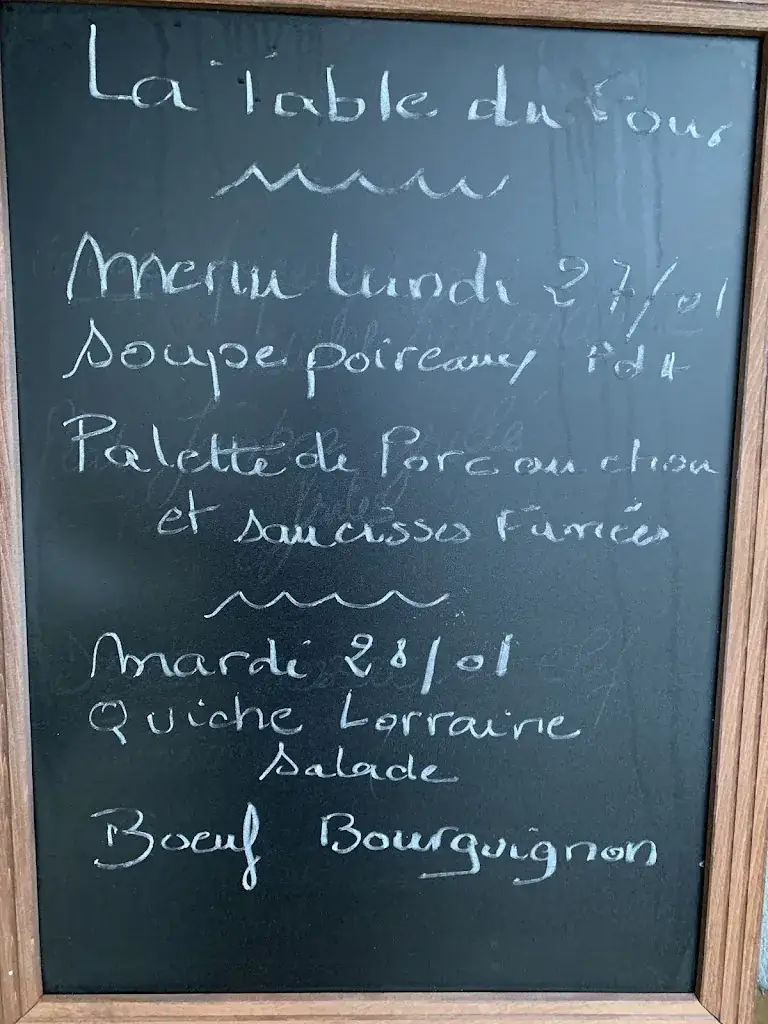 La Table du Four
Menu lundi 27/01
Soupe poireaux Pdt
Palette de Porc au chou
et saucisses Fumées
Mardi 28/01
Quiche Lorraine
Salade
Boeuf Bourguignon